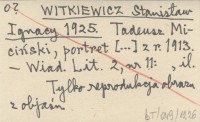 o? WITKIEWICZ Stanisław
Ignacy 1925. Tadeusz Mi-
ciński, portret [...] z r. 1913.
– Wiad. Lit. 2, nr 11: , il.
Tylko reprodukcja obrazu
z objaśn.